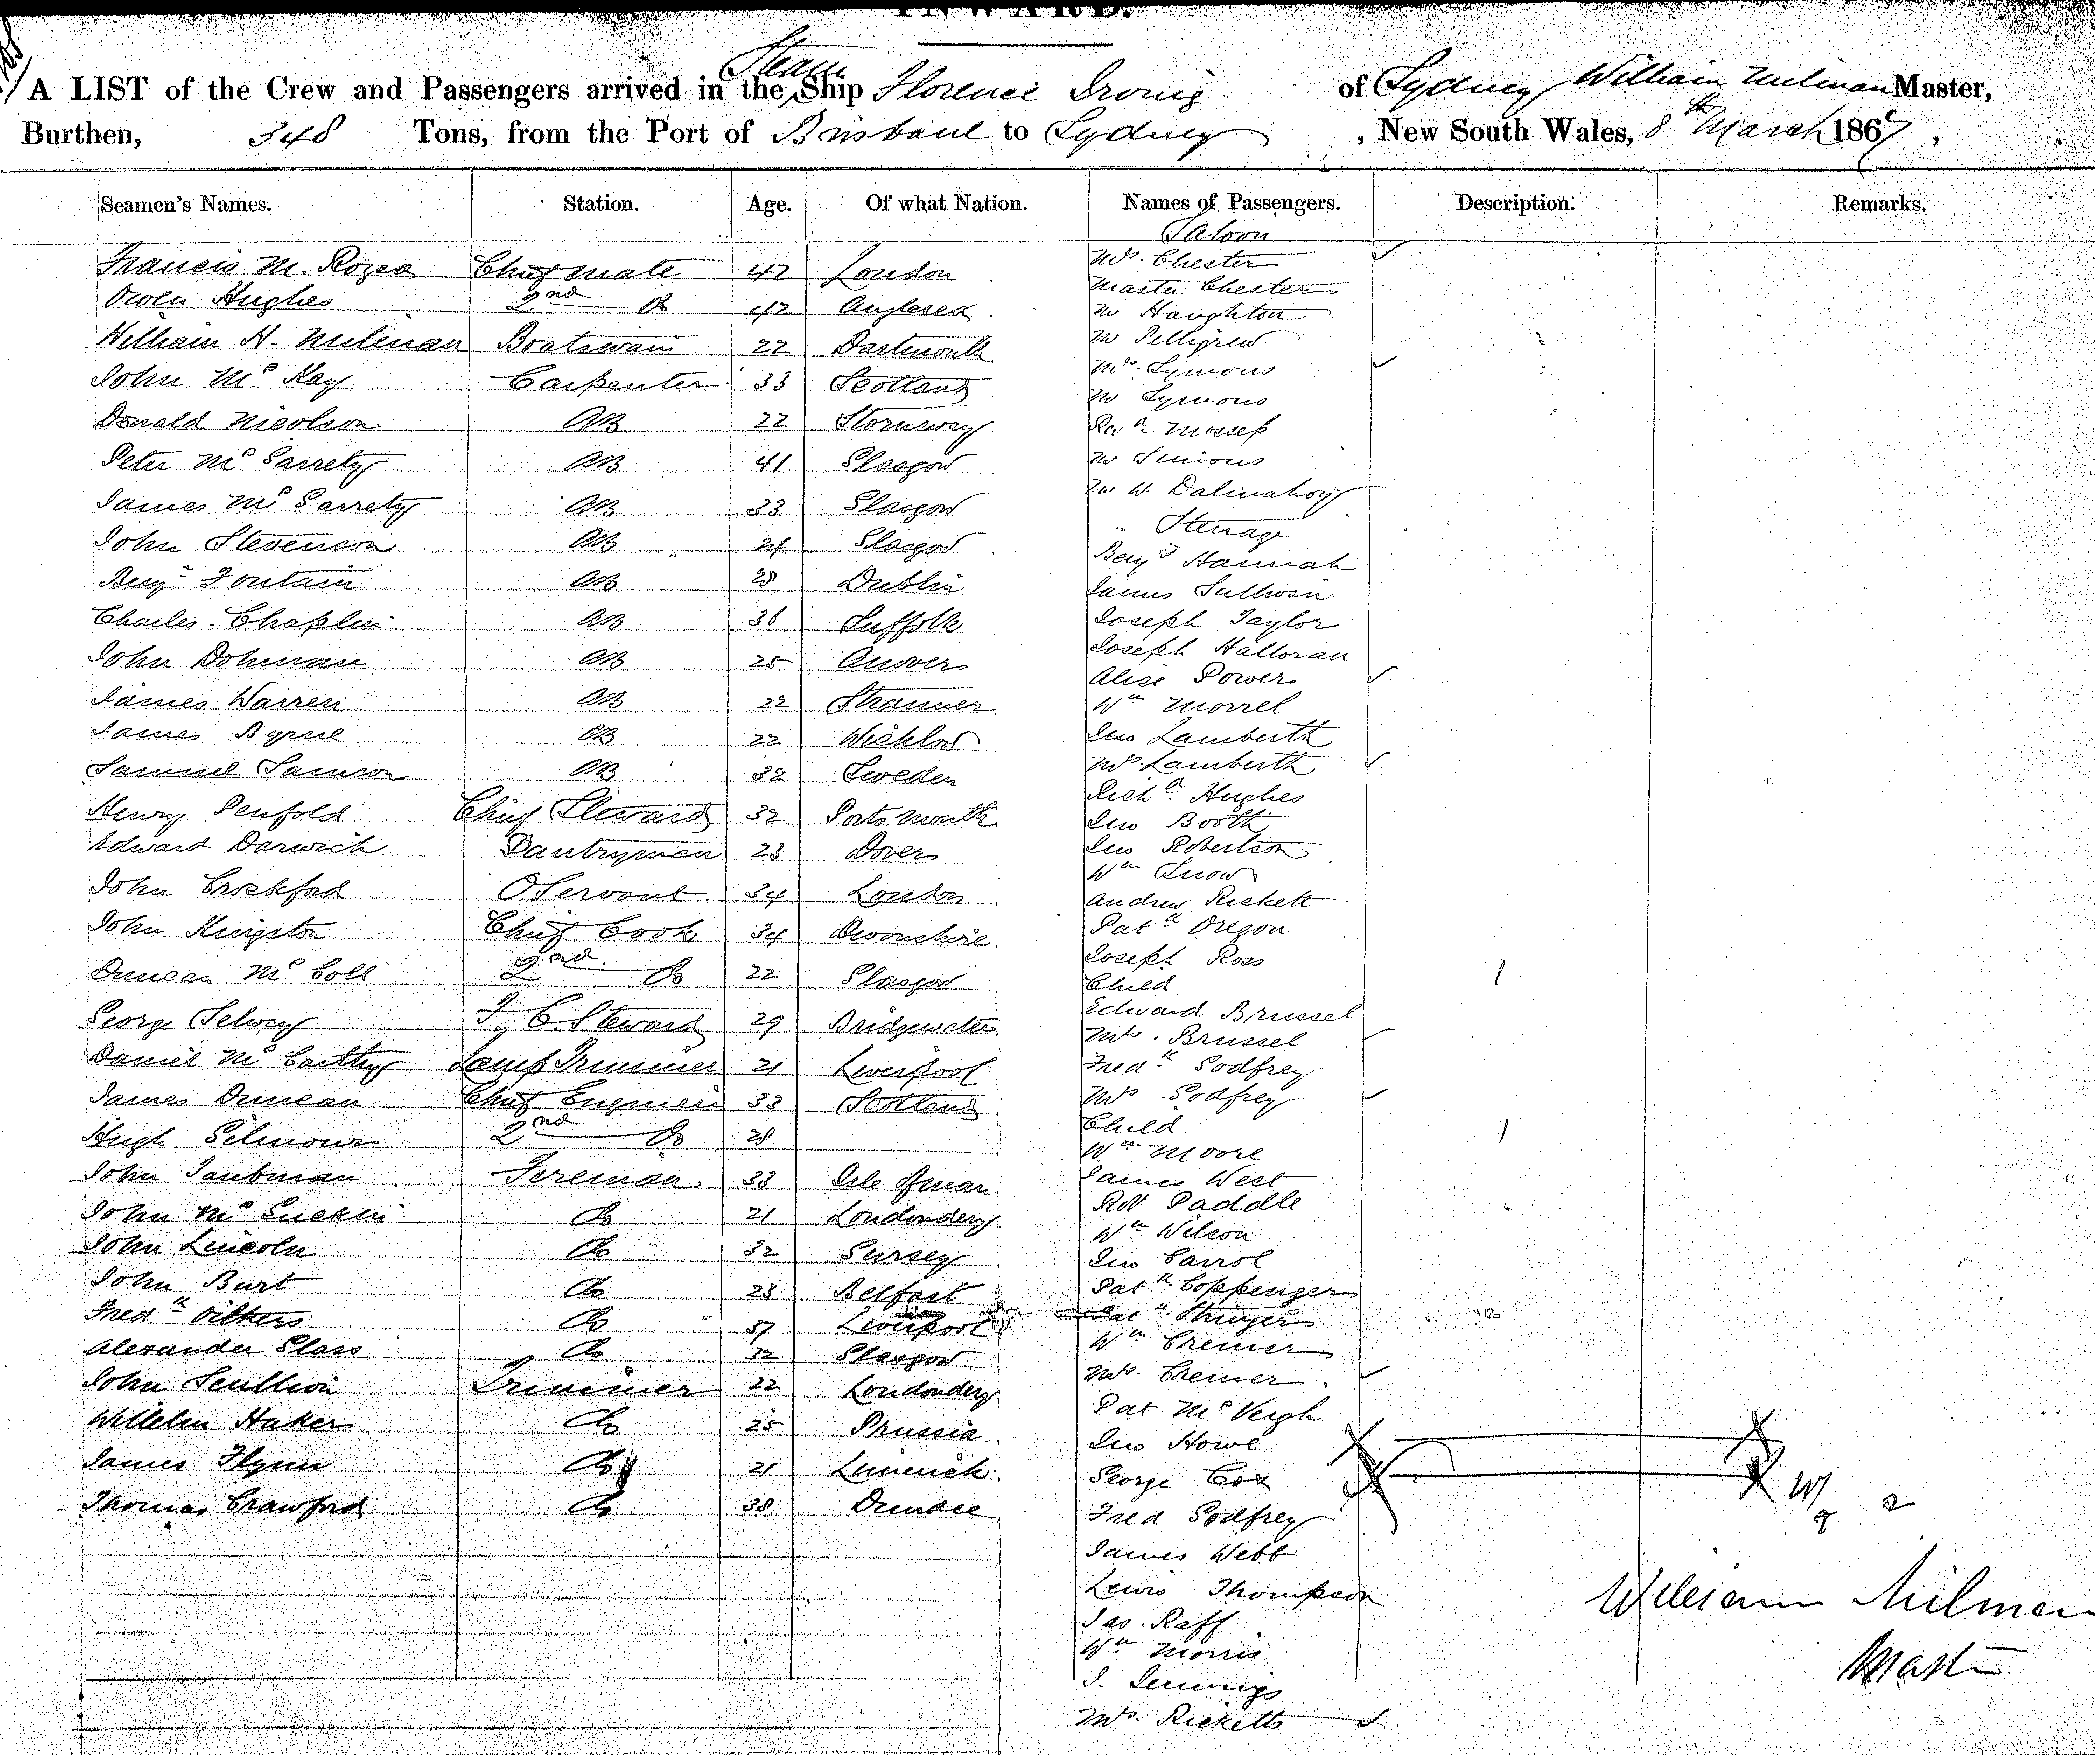 INWARD.
A LIST of the Crew and Passengers arrived in the Steam Ship Florence Irving of Sydney William Milman Master,
Burthen, 348 Tons, from the Port of Brisbane to Sydney, New South Wales, 8th March 1867,
Seamen's Names. Station. Age. Of what Nation. Names of Passengers. Description. Remarks.
Saloon
Francis M. Rozea Chief Mate 42 London Mrs. Chester
Master Chester
Owen Hughes 2nd Do 42 Anglesea Mr Haughton
William H. Milman Boatswain 22 Dartmouth Mr Pettigrew
John Mc Kay Carpenter 33 Scotland Mrs Symons
Mr Symons
Donald Nicolson AB 22 Stornoway Mossep
Peter Mc Garrety AB 41 Glasgow Mr Simons
James Mc Garrety AB 33 Glasgow W. Dalmahoy
Steerage
John Stevenson AB Glasgow Benjn Hannah
Benjn Fontain AB 28 Dublin James Sullivan
Charles Chaplin AB 36 Suffolk Joseph Taylor
John Dohman AB 25 Joseph Halloran
Alise Power
James Warren AB 22 Wm Morrel
James Byrne AB 22 Wicklow Jno Lamberth
Samuel Samson AB 32 Sweden Mrs Lamberth
Richd Hughes
Henry Penfold Chief Steward 32 Portsmouth Jno Booth
Edward Darwich Pantryman 23 Dover Jno Robertson
Wm Snow
John O Servant 34 London Andrew Rickett
John Kingston Chief Cook 34 Devonshire Patk Oregon
Joseph Ross
Duncan Mc Coll 2nd Do 22 Glasgow Child 1
George Selwey F. C. Steward 29 Bridgewater Edward Brussel
Mrs. Brussel
Daniel Mc Carthy Lamp Trimmer 21 Liverpool Fredk Godfrey
James Duncan Chief Engineer 33 Scotland Mrs Godfrey
Child 1
Hugh Gilmour 2nd Do 28 Wm Moore
John Taubman Fireman 33 Isle of Man James West
Robt Paddle
John Mc Do 21 Londonderry Wm Wilson
John Lincoln Do 32 Jersey Jno Carrol
John Burt Do 23 Belfast Patk Coppenger
Fredk Vickers Do 37 Liverpool Stringer
Wm Cremer
Alexander Glass Do 32 Glasgow Mrs. Cremer
John Scullion Trimmer 22 Londonderry Pat Mc Veigh
Wilhelm Haker Do 25 Prussia Jno Howe
James Flynn Do 21 Limerick George Cox
Thomas Crawford Do 38 Dundee Fred Godfrey
James Webb
Lewis Thompson
Jas. Raff
Wm Morris
J. Jennings
Mrs. Ricketts
William Milman
Master